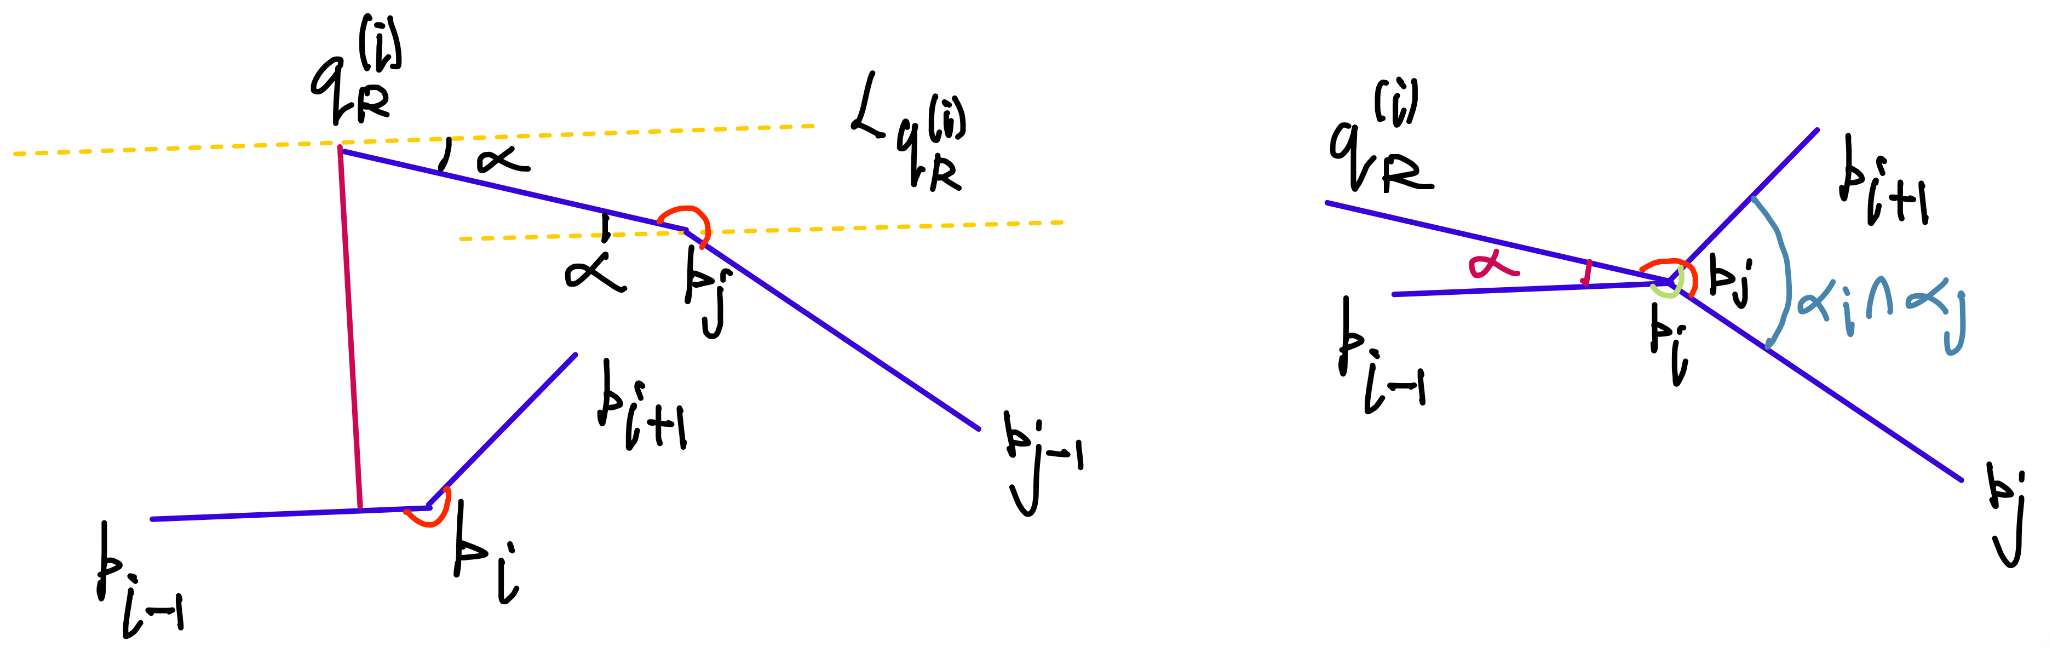 q_R^(i)
L_{q_R^(i)}
α
α
p_j
p_{i+1}
p_{j-1}
p_i
p_{i-1}
q_R^(i)
p_{i+1}
α
p_j
α_i ∩ α_j
p_i
p_{i-1}
p_j